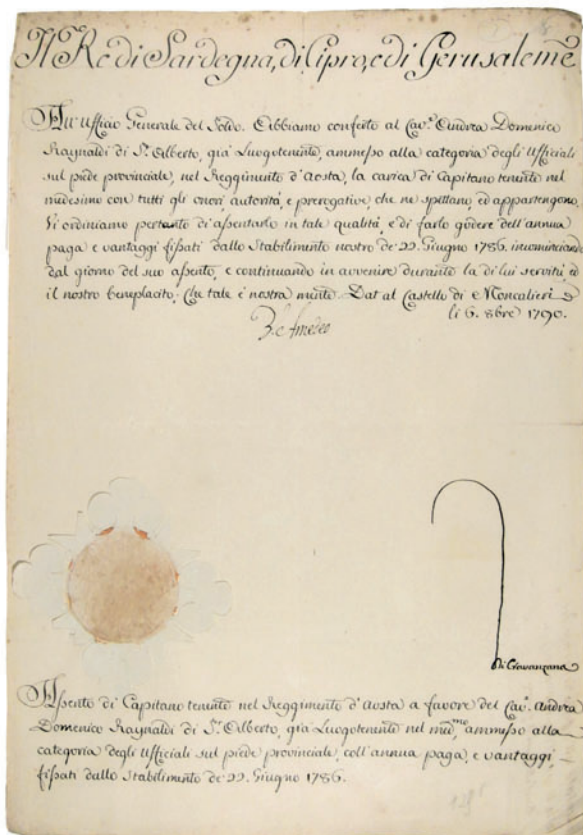 Il Re di Sardegna, di Cipro, e di Gerusaleme
All'Ufficio Generale del Soldo. Abbiamo conferto al Cav.e Andrea Domenico
Raynaldi di S.t Alberto, già Luogotenente, ammesso alla categoria degli Ufficiali
sul piede provinciale, nel Reggimento d'Aosta, la carica di Capitano tenente nel
medesimo con tutti gli onori, autorità, e prerogative, che ne spettano, ed appartengono.
Vi ordiniamo pertanto di assentarlo in tale qualità, e di farlo godere dell'annua
paga e vantaggi fissati dallo Stabilimento nostro de 22. Giugno 1786. incominciando
dal giorno del suo assento, e continuando in avvenire durante la di lui servitù, ed
il nostro beneplacito; Che tale è nostra mente. Dat al Castello di Moncalieri
li 6. 8bre 1790.
V. Amedeo
Di Cravanzana
Assento di Capitano tenente nel Reggimento d'Aosta a favore del Cav.e Andrea
Domenico Raynaldi di S.t Alberto, già Luogotenente nel med.mo, ammesso alla
categoria degli Ufficiali sul piede provinciale, coll'annua paga, e vantaggi
fissati dallo Stabilimento de 22. Giugno 1786.